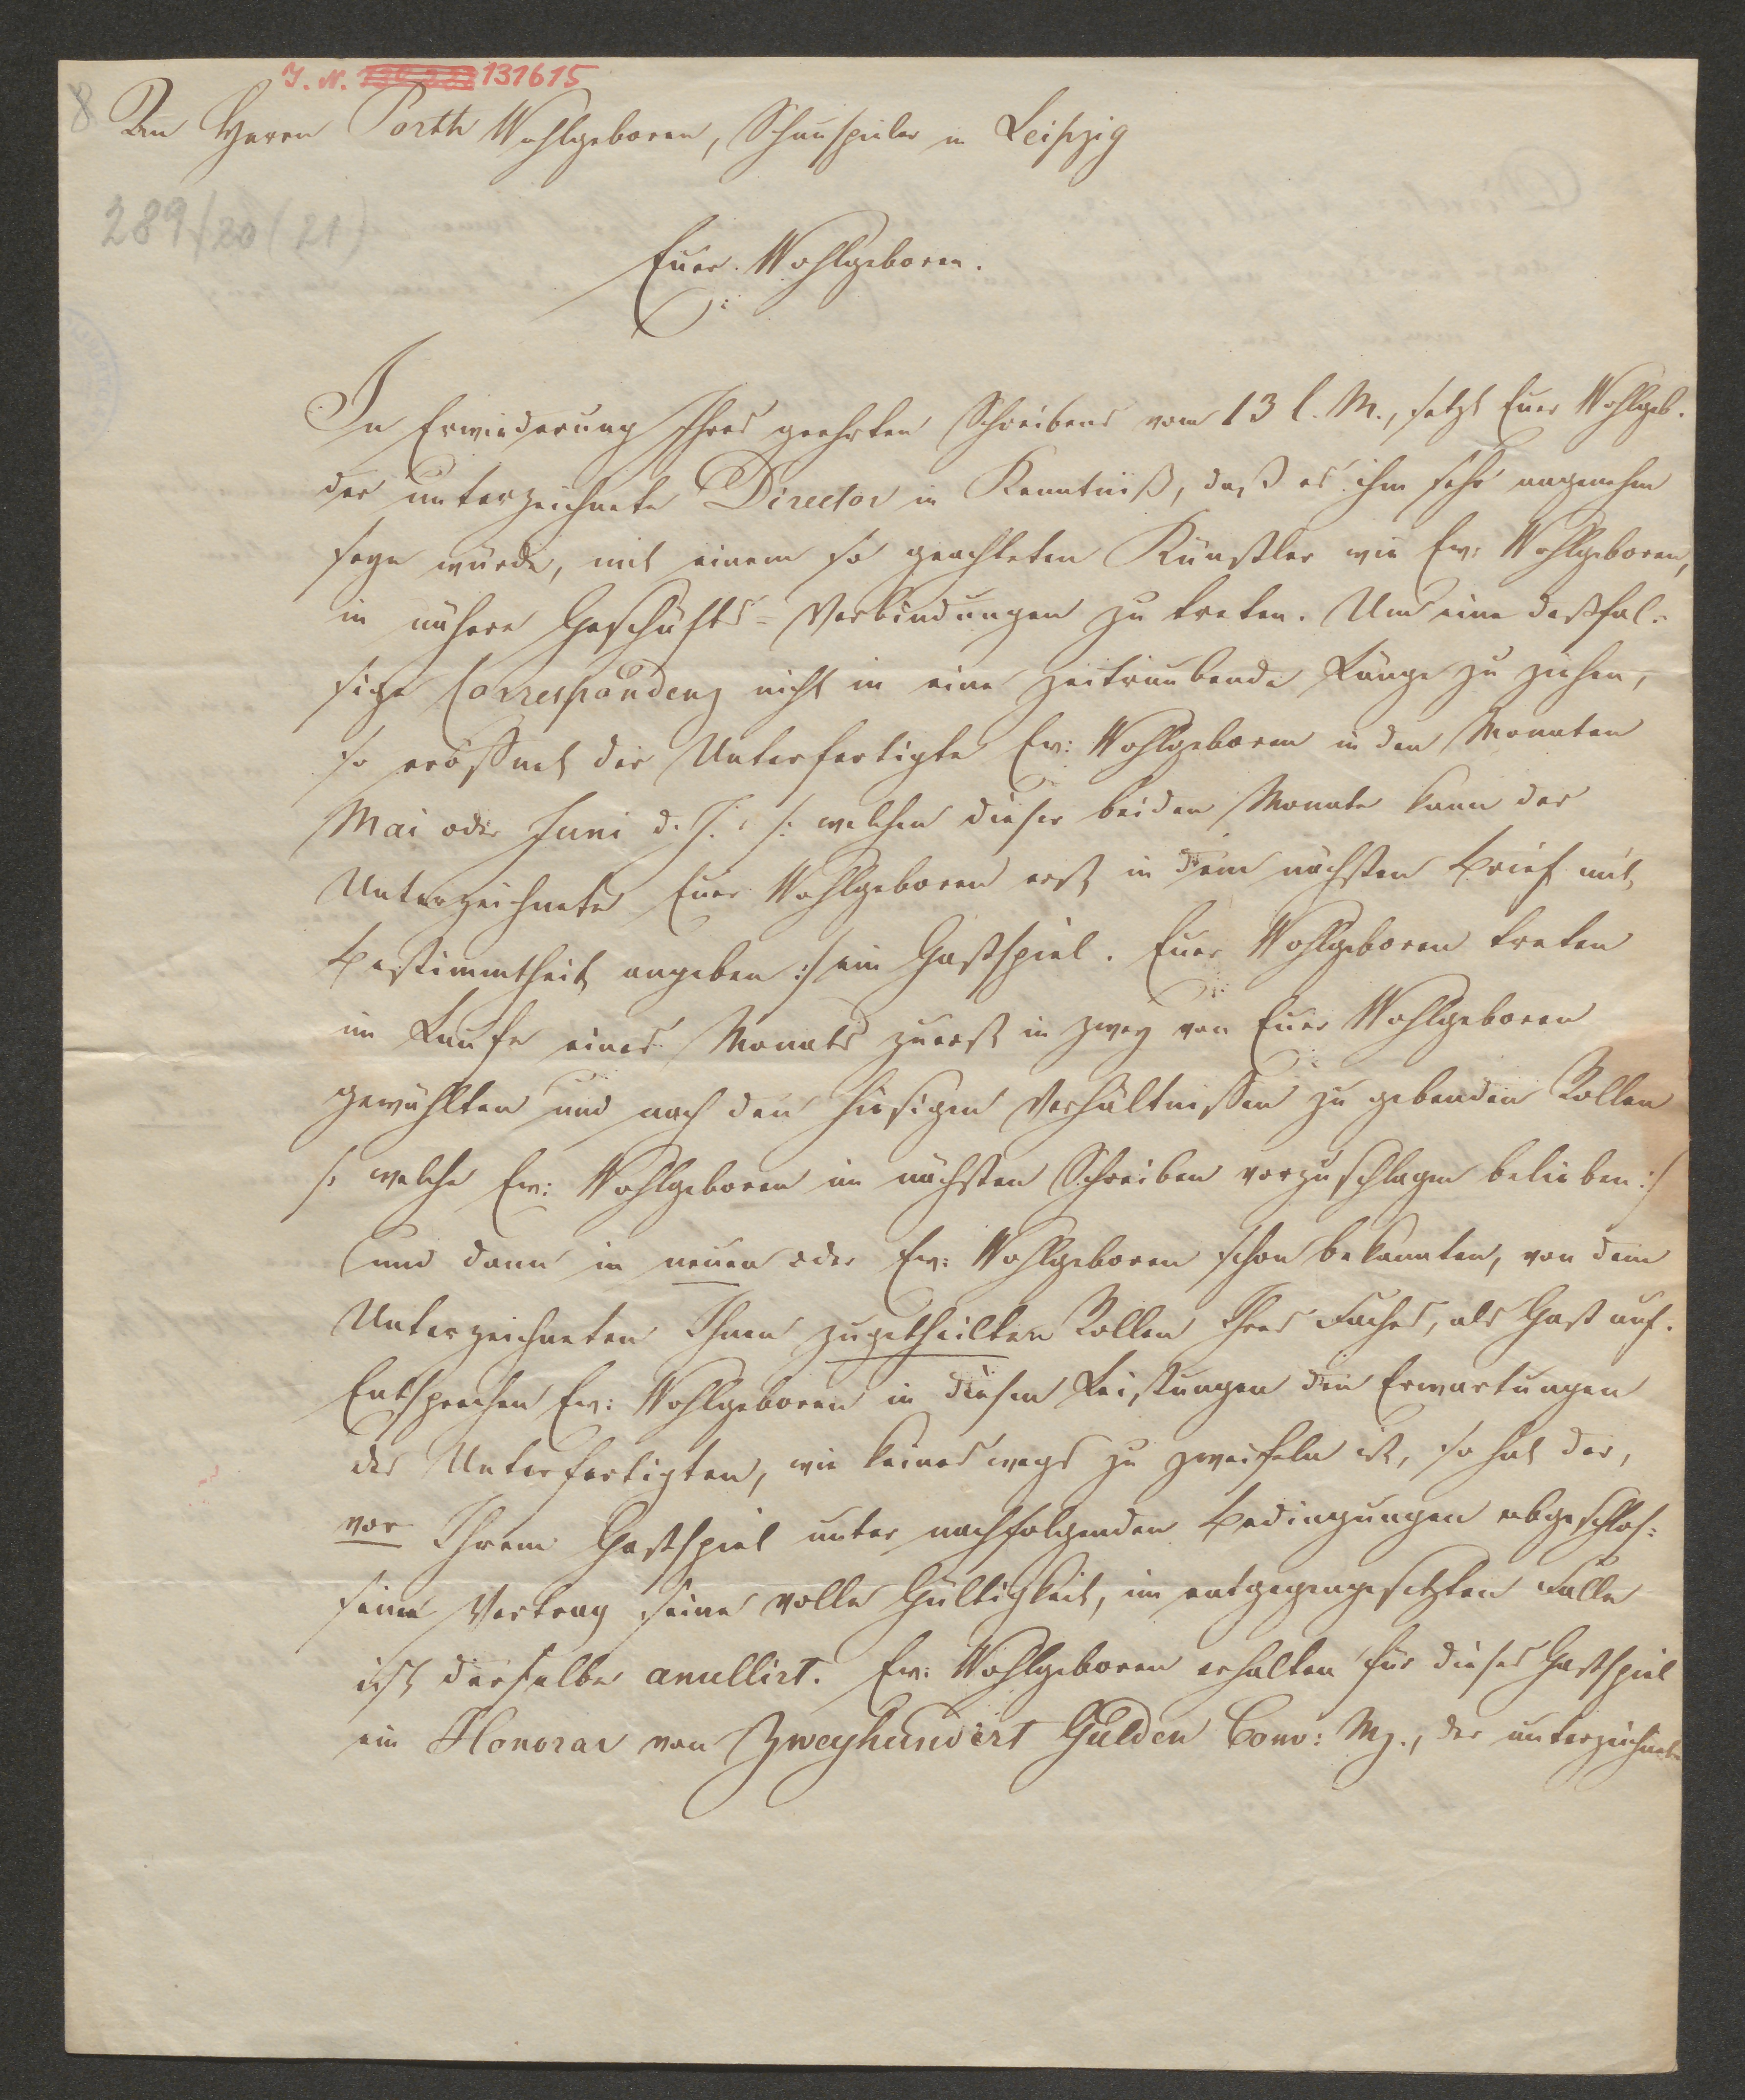 J. N. 131615
8 An Herrn Porth Wohlgeboren, Schauspieler in Leipzig
289/20 (21)
Euer Wohlgeboren.
In Erwiederung Ihres geehrten Schreibens vom 13 l. M., setzt Euer Wohlgeb.
der unterzeichnete Director in Kenntniß, daß es ihm sehr angenehm
seyn würde, mit einem so geachteten Künstler wie Ew: Wohlgeboren,
in nähere Geschäfts-Verbindungen zu treten. Um eine deßfal-
sige Correspondenz nicht in eine zeitraubende Länge zu ziehen,
so eröffnet der Unterfertigte Ew: Wohlgeboren in den Monaten
Mai oder Juni d. J. /: welchen dieser beiden Monate kann der
Unterzeichnete Euer Wohlgeboren erst in dem nächsten Brief mit
Bestimmtheit angeben :/ ein Gastspiel. Euer Wohlgeboren treten
im Laufe eines Monats zuerst in zwey von Euer Wohlgeboren
gewählten und nach den hiesigen Verhältnissen zu gebenden Rollen
/: welche Ew: Wohlgeboren im nächsten Schreiben vorzuschlagen belieben :/
und dann in neuen oder Ew: Wohlgeboren schon bekannten, von dem
Unterzeichneten Ihnen zugetheilten Rollen Ihres Faches, als Gast auf.
Entsprechen Ew: Wohlgeboren in diesen Leistungen den Erwartungen
des Unterfertigten, wie keines wegs zu zweifeln ist, so hat der,
vor Ihrem Gastspiel unter nachfolgenden Bedingungen abgeschlos=
sene Vertrag seine volle Gültigkeit, im entgegengesetzten Falle
ist derselbe anullirt. Ew: Wohlgeboren erhalten für dieses Gastspiel
ein Honorar von Zweyhundert Gulden Conv: Mz., der unterzeichnete